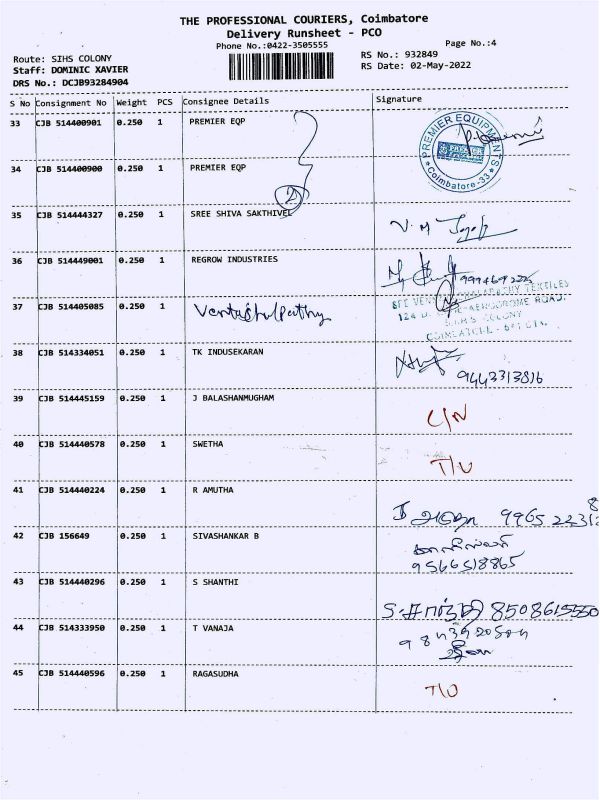 THE PROFESSIONAL COURIERS, Coimbatore
Delivery Runsheet - PCO
Phone No.:0422-3505555
Page No.:4
Route: SIHS COLONY
RS No.: 932849
Staff: DOMINIC XAVIER
RS Date: 02-May-2022
DRS No.: DCJB93284904
S No Consignment No Weight PCS Consignee Details Signature
33 CJB 514400901 0.250 1 PREMIER EQP
PREMIER EQUIPMENTS
Coimbatore-33
34 CJB 514400900 0.250 1 PREMIER EQP
2
35 CJB 514444327 0.250 1 SREE SHIVA SAKTHIVEL
36 CJB 514449001 0.250 1 REGROW INDUSTRIES
37 CJB 514405085 0.250 1
38 CJB 514334051 0.250 1 TK INDUSEKARAN
9443313816
39 CJB 514445159 0.250 1 J BALASHANMUGHAM
C/N
40 CJB 514440578 0.250 1 SWETHA
T/U
41 CJB 514440224 0.250 1 R AMUTHA
42 CJB 156649 0.250 1 SIVASHANKAR B
9566518865
43 CJB 514440296 0.250 1 S SHANTHI
8508615550
44 CJB 514333950 0.250 1 T VANAJA
45 CJB 514440596 0.250 1 RAGASUDHA
T/U